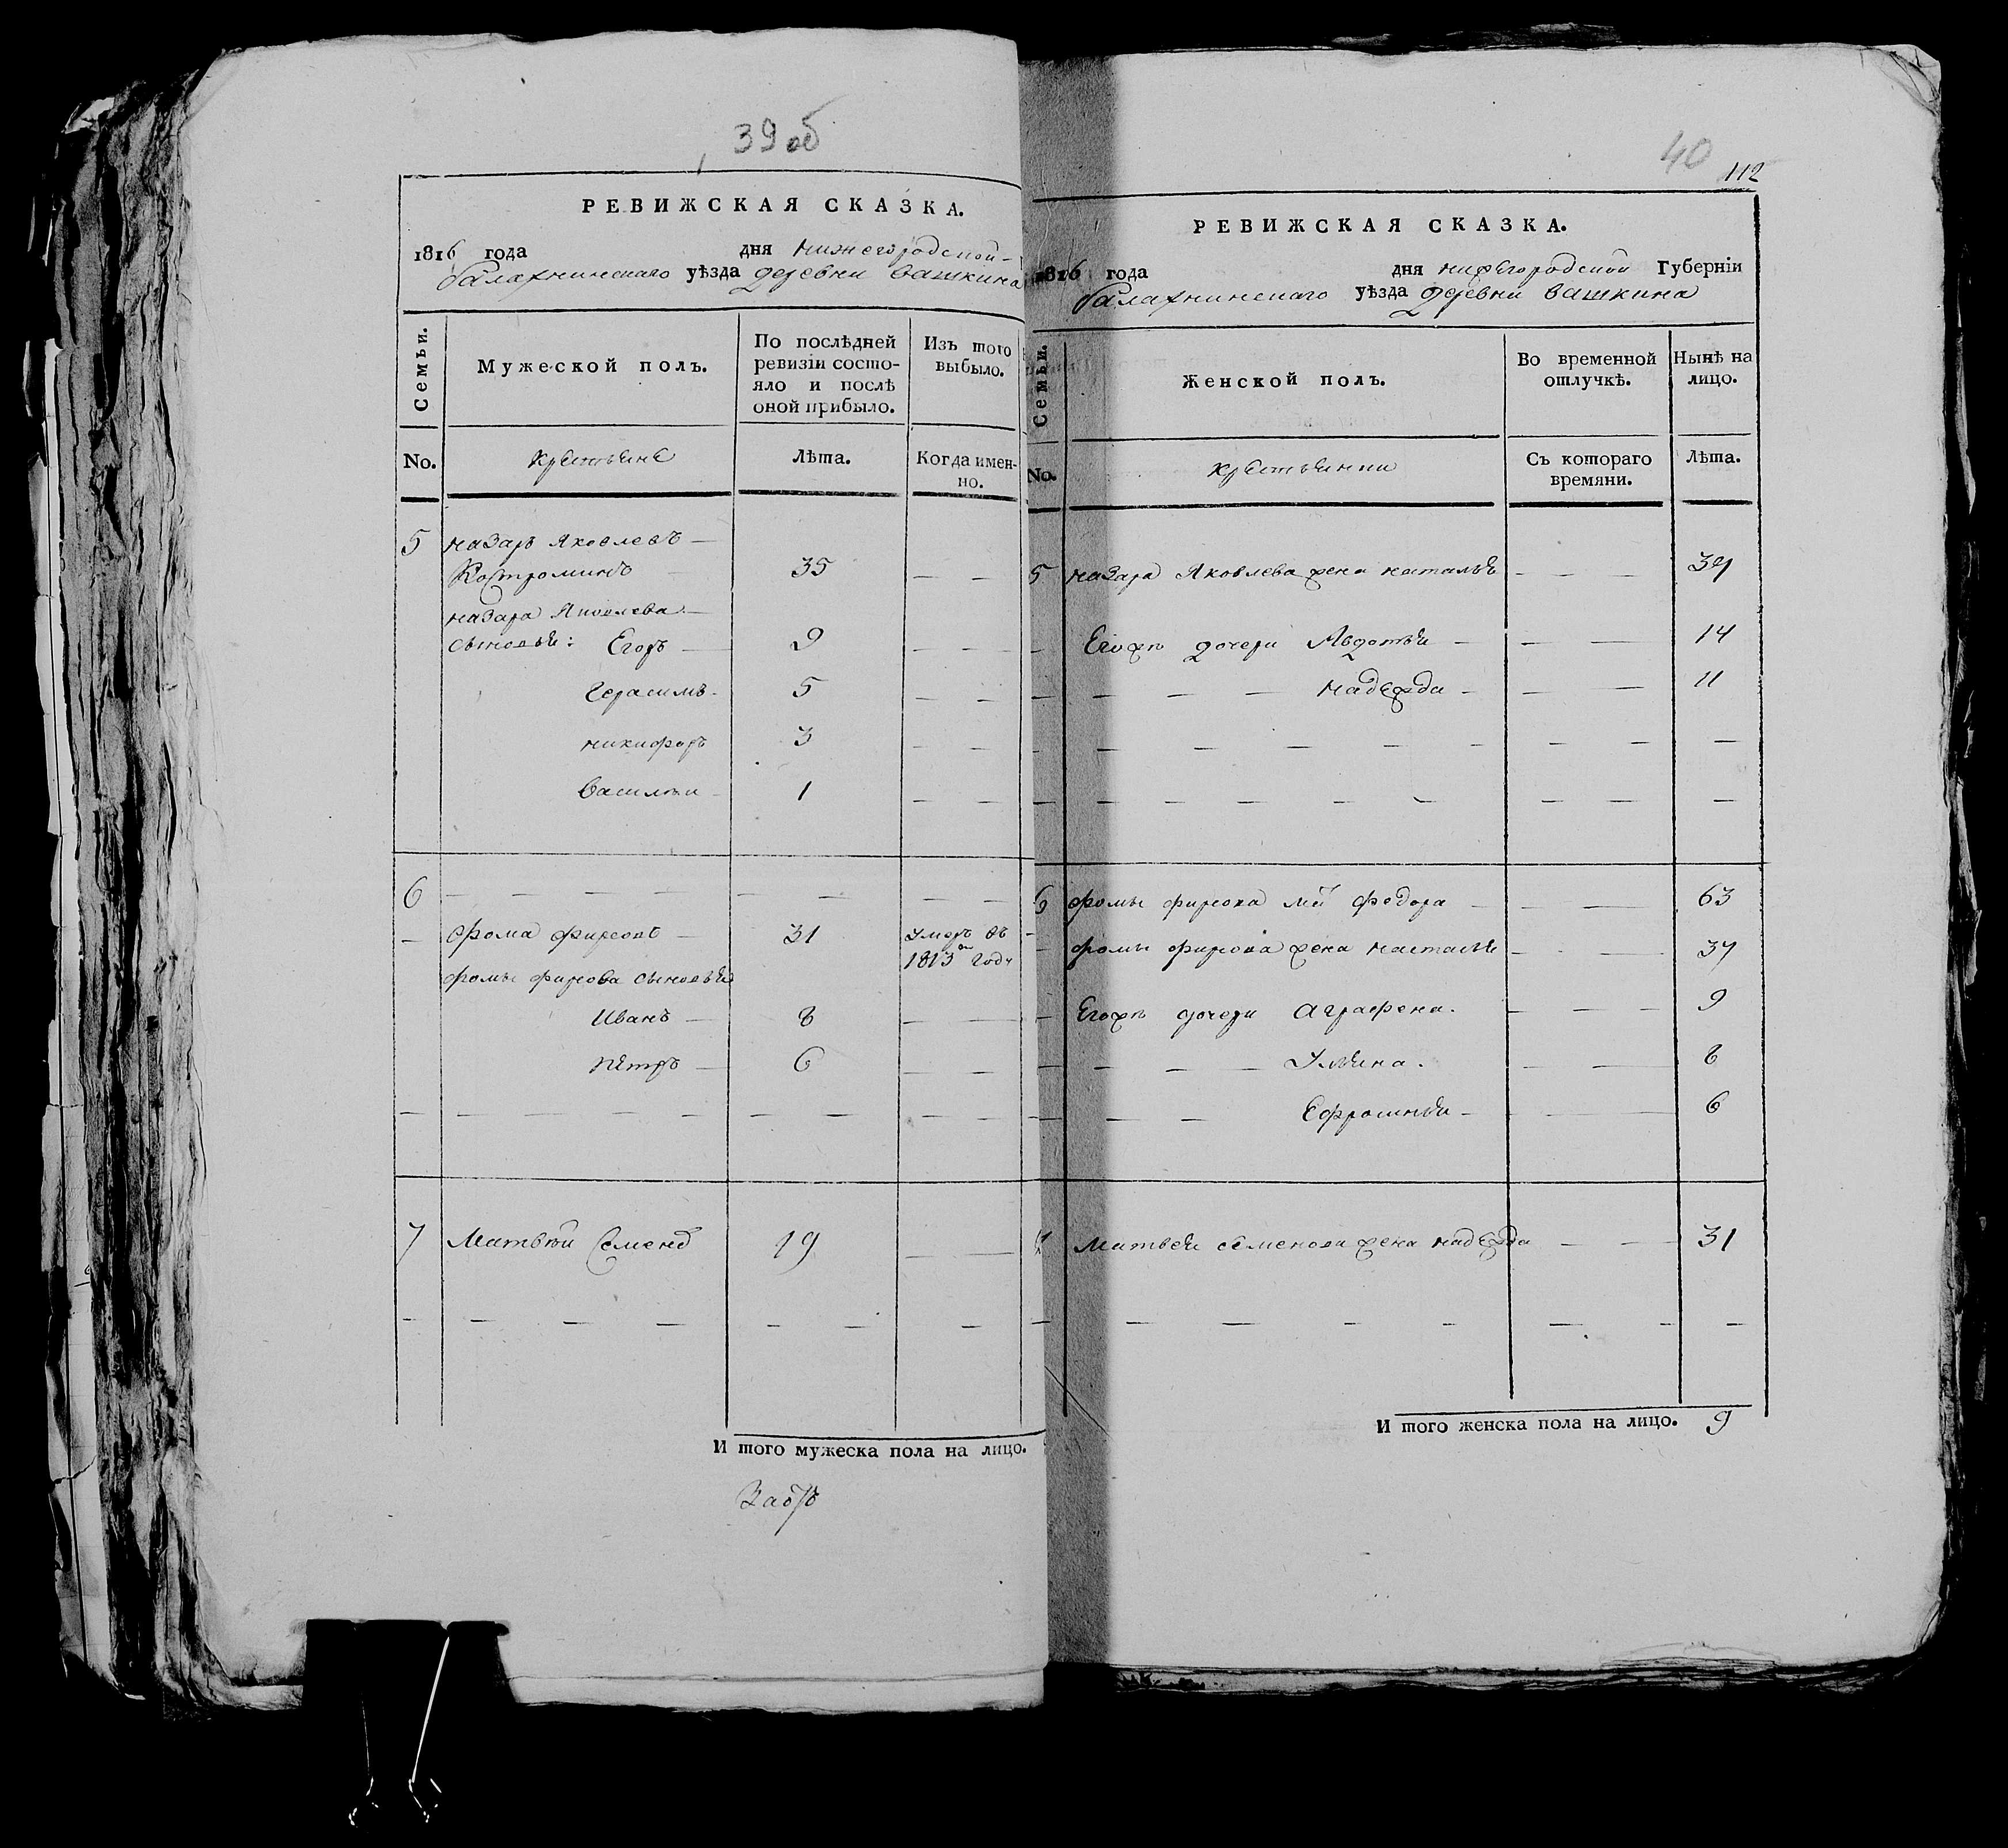 39 об
РЕВИЖСКАЯ СКАЗКА.
1816 года дня нижегородской
балахнинскаго уѣзда деревни вашкина
Семьи. Мужеской полъ. По послѣдней ревизіи состояло и послѣ оной прибыло. Изъ того выбыло.
No. крестьяне Лѣта. Когда именно.
5 назаръ Яковлевъ —
Костроминъ — 35 — —
назара Яковлева —
сыновья: Егоръ — 9 — —
Герасимъ — 5 — —
никифоръ 3 — —
василѣи — 1 — —
6 — — — — — — — —
— фома фирсовъ — 31 умеръ въ 1813 м году
фомы фирсова сыновья
Иванъ — 8 — —
петръ — 6 — —
— — — — — — — — —
7 Матвѣи Семенов 19 — —
— — — — — — —
И того мужеска пола на лицо.
40
112
РЕВИЖСКАЯ СКАЗКА.
1816 года дня нижегородской Губерніи
балахнинскаго уѣзда деревни вашкина
Семьи. Женской полъ. Во временной отлучкѣ. Нынѣ на лицо.
No. крестьянки Съ котораго времяни. Лѣта.
5 назара Яковлева жена наталья — — — 39
— Егожъ дочери Авдотья — — — 14
— — — — надежда — — — 11
— — — — — — — —
— — — — — — — — —
6 фомы фирсова м͠т федора — — — 63
— фомы фирсова жена насталья — — — 37
— Егожъ дочери аграфена. — — — 9
— — — — Ульяна. — — 8
— — — Ефросинья — — — 6
7 матвея семенова жена надежда — — — 31
— — — — — — — —
И того женска пола на лицо. 9